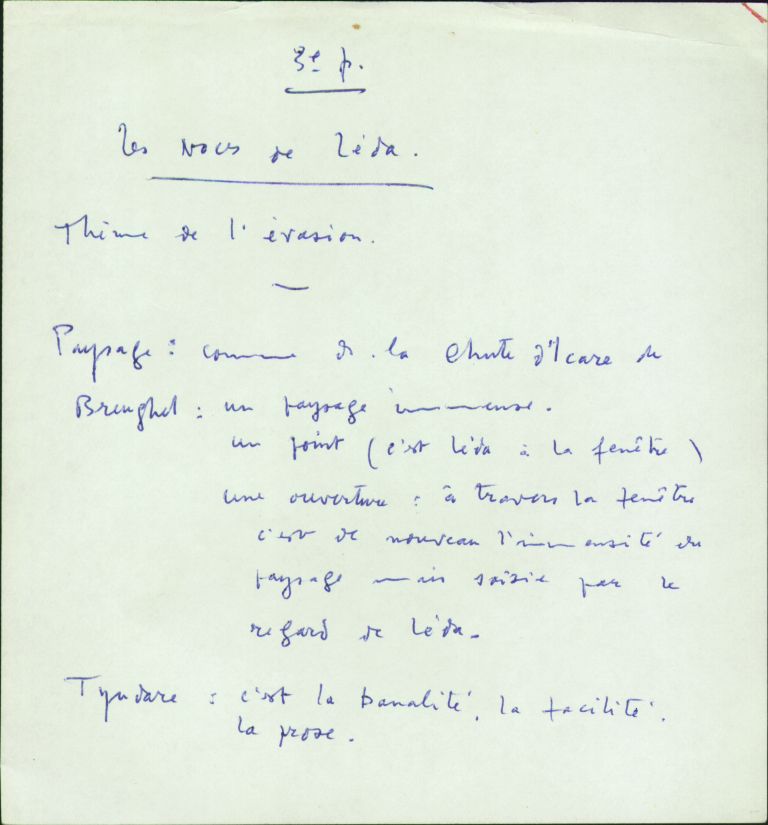 3e p.
Les Noces de Léda.
Thème de l'évasion.
—
Paysage : comme ds. la Chute d'Icare de
Breughel : un paysage immense.
un point (c'est Léda à la fenêtre)
une ouverture : à travers la fenêtre
c'est de nouveau l'immensité du
paysage mais saisie par le
regard de Léda.
Tyndare : c'est la banalité, la facilité.
la prose.